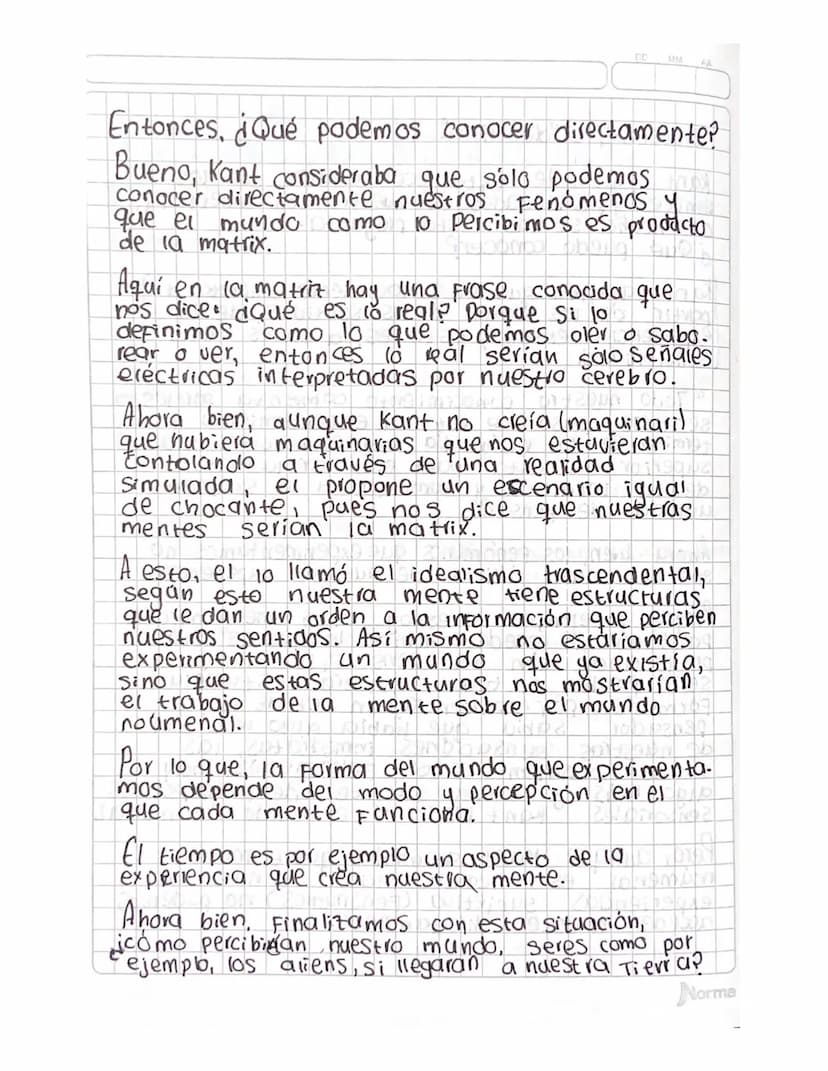 DD MM AA
Entonces, ¿Qué podemos conocer directamente?
Bueno, Kant consideraba que sólo podemos
conocer directamente nuestros Fenómenos y
que el mundo como lo percibimos es producto
de la matrix.
Aquí en la matriz hay una Frase conocida que
nos dice: ¿Qué es lo real? Porque si lo
definimos como lo que podemos oler o sabo-
rear o ver, entonces lo real serían sólo señales
eléctricas interpretadas por nuestro cerebro.
Ahora bien, aunque Kant no creía (maquinari)
que hubiera maquinarias que nos estuvieran
contolando a través de una realidad
simulada, el propone un escenario igual
de chocante, pues nos dice que nuestras
mentes serían la matrix.
A esto, el lo llamó el idealismo trascendental,
según esto nuestra mente tiene estructuras
que le dan un orden a la información que perciben
nuestros sentidos. Así mismo no estaríamos
experimentando un mundo que ya existía,
sino que estas estructuras nos mostrarían
el trabajo de la mente sobre el mundo
noumenal.
Por lo que, la Forma del mundo que experimenta-
mos depende del modo y percepción en el
que cada mente Funciona.
El tiempo es por ejemplo un aspecto de la
experiencia que crea nuestra mente.
Ahora bien, Finalizamos con esta situación,
¿cómo percibirían nuestro mundo, seres como por
ejemplo, los aliens, si llegaran a nuestra Tierra?
Norma